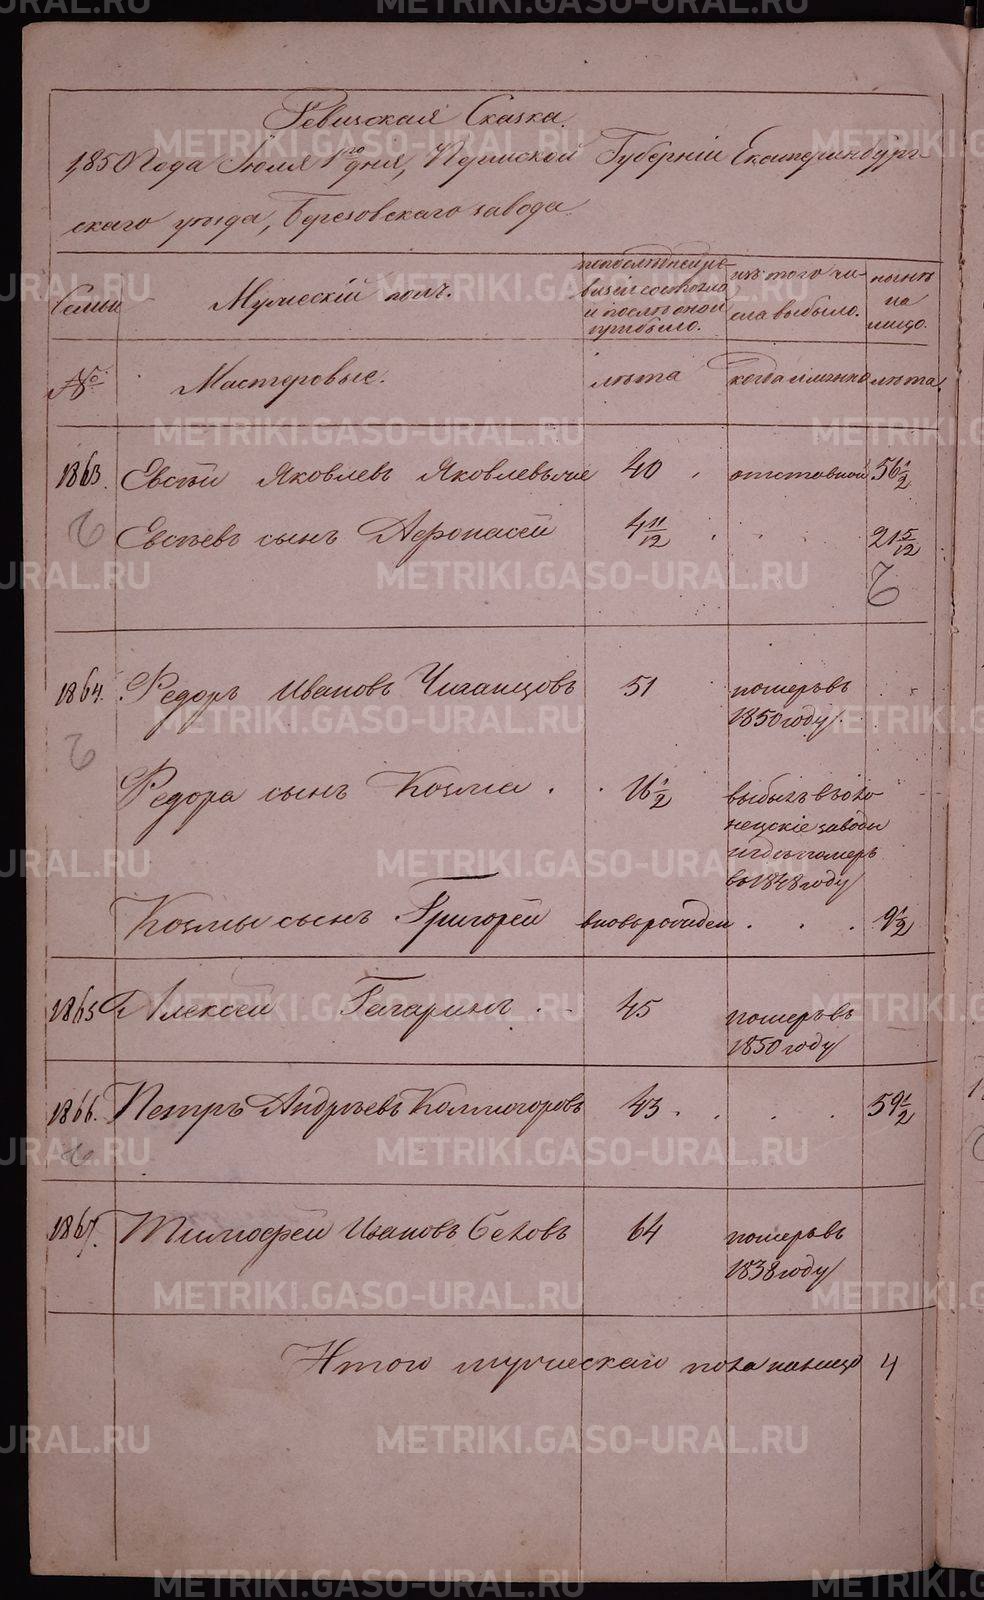 Ревизская Сказка.
1850 года Июля 1го дня, Пермской Губернiи Екатеринбург-
скаго уѣзда, Березовскаго завода.
Семьи
Мужескiй полъ.
по последней ре-
визiи состояло
и послѣ оной
прибыло.
изъ того чи-
сла выбыло.
нынѣ
на
лицо.
№
Мастеровые.
лѣта
когда именно
лѣта.
1863. Евсѣй Яковлевъ Яковлевыче 40 отставной 56 1/2
Евсѣевъ сынъ Афонасей 4 11/12 21 5/12
1864. Федоръ Ивановъ Чиганцовъ 51 померъ въ
1850 году
Федора сынъ Козма 16 1/2 выбылъ в оло
нецскiе заводы
и гдѣ померъ
въ 1848 году
Козмы сынъ Григорей вновь рожден 9 1/2
1865 Алексей Гагаринъ 45 померъ въ
1850 году
1866. Петръ Андрѣевъ Колмогоровъ 43 59 1/2
1867. Тимофей Ивановъ Беловъ 64 померъ въ
1838 году
Итого мужескаго пола на лицо 4
METRIKI.GASO-URAL.RU